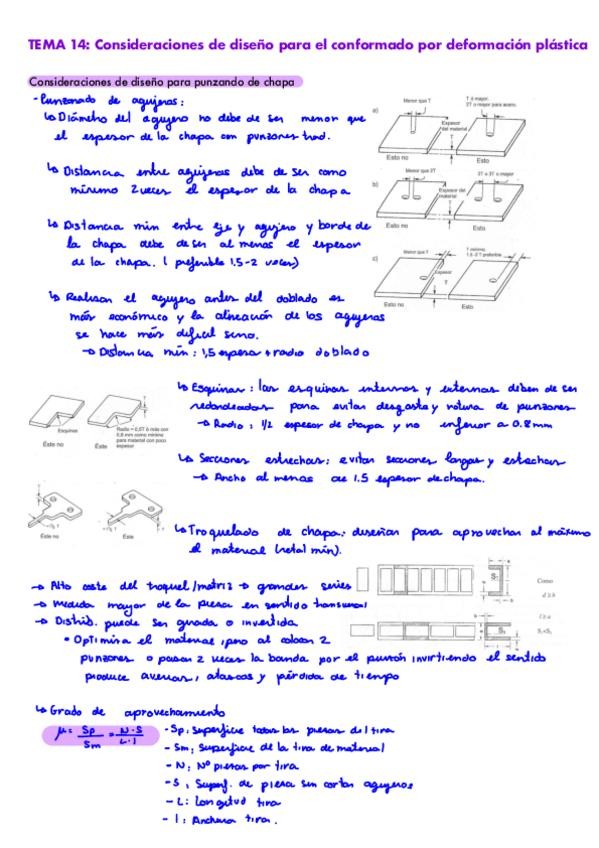 TEMA 14: Consideraciones de diseño para el conformado por deformación plástica
Consideraciones de diseño para punzando de chapa
- Punzonado de agujeros:
↳ Diámetro del agujero no debe de ser menor que
el espesor de la chapa con punzones trad.
↳ Distancia entre agujeros debe de ser como
mínimo 2 veces el espesor de la chapa
↳ Distancia min entre eje y agujero y borde de
la chapa debe de ser al menos el espesor
de la chapa. ( preferible 1.5-2 veces)
↳ Realizar el agujero antes del doblado es
más económico y la alineación de los agujeros
se hace más difícil sino.
→ Distancia mín: 1,5 espesor + radio doblado
a)
Menor que T
T ó mayor.
2T o mayor para acero.
Espesor
del material
T
Esto no
Esto
b)
Menor que 2T
2T a 3T o mayor
Espesor del
material
T
Esto no
Esto
c)
Menor que T
T mínimo.
1.5 -2 T preferible
Espesor
T
Esto no
Esto
↳ Esquinas: las esquinas internas y externas deben de ser
redondeadas para evitar desgaste y rotura de punzones
→ Radio: 1/2 espesor de chapa y no inferior a 0.8mm
Esquinas
Éste no
T
Radio = 0,5T ó más con
0,8 mm como mínimo
para material con poco
espesor
Éste
↳ Secciones estrechas: evitar secciones largas y estrechas
→ Ancho al menos de 1.5 espesor de chapa.
Éste no
Éste
↳ Troquelado de chapa: diseñar para aprovechar al máximo
el material (retal mín).
→ Alto coste del troquel/matriz → grandes series
→ Medida mayor de la pieza en sentido transversal
→ Distrib. puede ser girada o invertida
• Optimiza el material, pero al colocar 2
punzones o pasar 2 veces la banda por el punzón invirtiendo el sentido
produce averías, atascos y pérdida de tiempo
Como
d ≥ b
l ≥ a
S₁<S₂
↳ Grado de aprovechamiento
μ = Sp/Sm = N·S/L·l
- Sp: Superficie todas las piezas del tira
- Sm: Superficie de la tira de material
- N: Nº piezas por tira
- S: Superf. de pieza sin cortar agujeros
- L: Longitud tira
- l: Anchura tira.